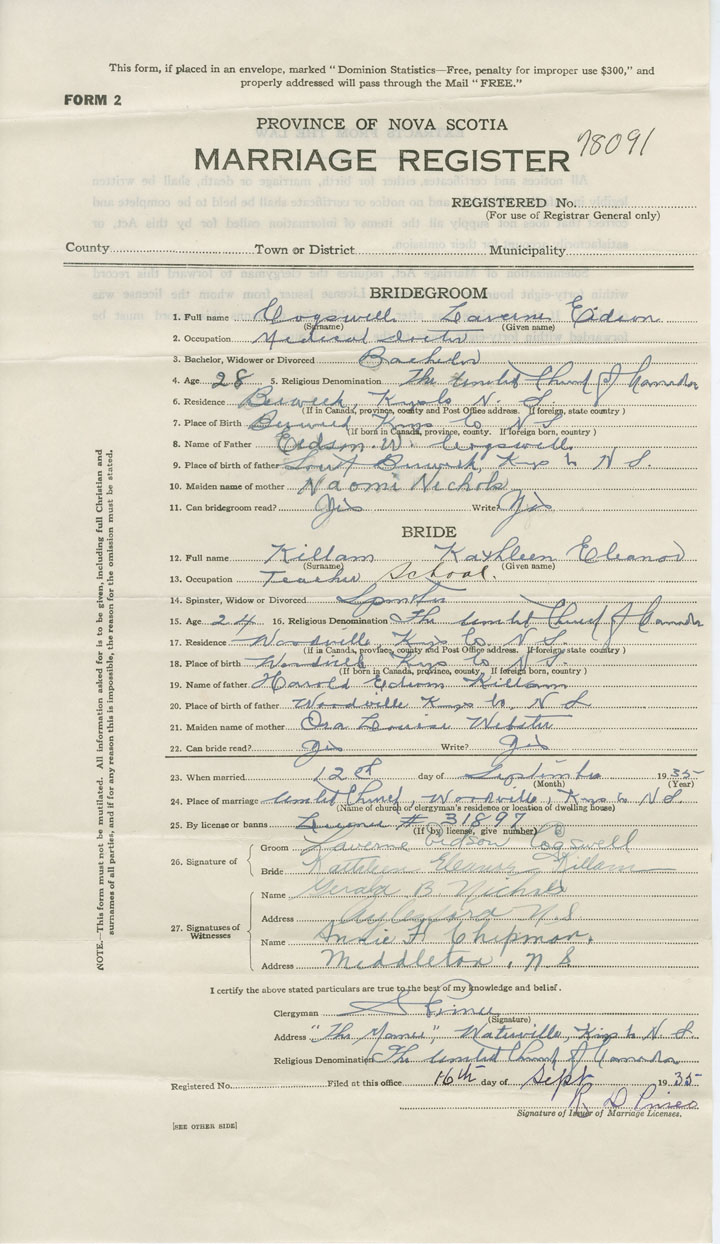 This form, if placed in an envelope, marked "Dominion Statistics—Free, penalty for improper use $300," and
properly addressed will pass through the Mail "FREE."
FORM 2
PROVINCE OF NOVA SCOTIA
78091
MARRIAGE REGISTER
REGISTERED No.
(For use of Registrar General only)
County Town or District Municipality
BRIDEGROOM
1. Full name Cogswell Laverne Eidson
(Surname) (Given name)
2. Occupation Medical Doctor
3. Bachelor, Widower or Divorced Bachelor
4. Age 28 5. Religious Denomination The United Church of Canada
6. Residence Berwick, Kings Co N. S.
(If in Canada, province, county and Post Office address. If foreign, state country)
7. Place of Birth Berwick Kings Co N.S.
(If born in Canada, province, county. If foreign born, country)
8. Name of Father Eidson W. Cogswell
9. Place of birth of father South Berwick, Kings Co N S.
10. Maiden name of mother Naomi Nichols
11. Can bridegroom read? Yes Write? Yes
BRIDE
12. Full name Killam Kathleen Eleanor
(Surname) (Given name)
13. Occupation Teacher School.
14. Spinster, Widow or Divorced Spinster
15. Age 24 16. Religious Denomination The United Church of Canada
17. Residence Woodville, Kings Co. N S.
(If in Canada, province, county and Post Office address. If foreign state country)
18. Place of birth Woodville Kings Co N.S.
(If born in Canada, province, county. If foreign born, country)
19. Name of father Harold Edwin Killam
20. Place of birth of father Woodville Kings Co. N S
21. Maiden name of mother Ora Louise Webster
22. Can bride read? Yes Write? Yes
23. When married 12th day of September 1935
(Month) (Year)
24. Place of marriage United Church, Woodville, Kings Co N S.
(Name of church or clergyman's residence or location of dwelling house)
25. By license or banns License # 31897
(If by license, give number)
26. Signature of
Groom Laverne Eidson Cogswell
Bride Kathleen Eleanor Killam
27. Signatures of Witnesses
Name Gerald B Nichols
Address Aylesford N.S
Name Annie H Chipman.
Address Middleton, N S
I certify the above stated particulars are true to the best of my knowledge and belief.
Clergyman Prince
(Signature)
Address "The Manse", Waterville, Kings Co N. S.
Religious Denomination The United Church of Canada
Registered No. Filed at this office 16th day of Sept 1935
R. D Pineo
Signature of Issuer of Marriage Licenses.
[SEE OTHER SIDE]
NOTE.—This form must not be mutilated. All information asked for is to be given, including full Christian and
surnames of all parties, and if for any reason this is impossible, the reason for the omission must be stated.